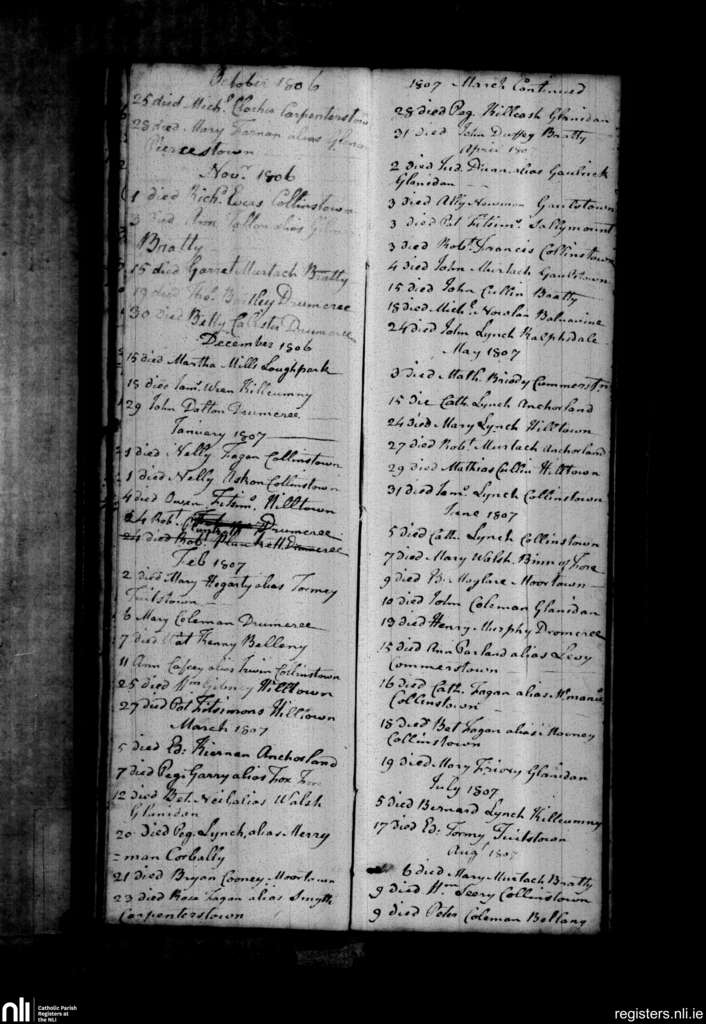 October 1806
25 died Mich.l Clochia Carpenterstown
28 died Mary Farnan alias
Piercestown
Nov.r 1806
1 died Rich.d Evers Collinstown
3 died Ann Tallon alias
Bratty
15 died Garret Murtach Bratty
19 died Tho.s Bartley Drumcree
30 Died Betty Callster Drumcree
December 1806
15 died Martha Mills Loughpark
18 died Jam.s Wren Killcumny
29 John Dalton Drumcree
January 1807
1 died Nelly Fagan Collinstown
1 died Nelly Askon Collinstown
4 died Owen Fitsim.s Hilltown
24 Rob.t Plunkett Drumcree
24 died Rob.t Plunkett Drumcree
Feb 1807
2 died Mary Hogarty alias Tormey
Tuitstown
6 Mary Coleman Drumcree
7 died Pat Kenny Belleny
11 Ann Caffey alias Irwin Collinstown
25 died W.m Gibney Hilltown
27 died Pat Fitsimons Hilltown
March 1807
5 died Ed: Kiernan Anchorland
7 died Peg: Garry alias Fox
12 died Bet. Neil alias Walsh
Glanidan
20 Died Peg. Lynch, alias Merry
= man Corbally
21 died Bryan Cooney Moortown
23 died Rose Fagan alias Smyth
Carpenterstown
1807 March Continued
28 died Peg. Killeash Glanidan
31 died John Duffey Bratty
April 180
2 died Jud. Dunn alias Gaulick
Glanidan
3 died Ally Newman Gaulstown
3 died Pat Fitsim.s Sallymount
3 died Rob.t Francis Collinstown
4 died John Murtach Gaulstown
15 died John Cullin Bratty
18 died Mich.l Nowlan Balnavine
24 died John Lynch Ralphsdale
May 1807
3 died Math. Briody Cummerstn
15 Die Cath. Lynch Anchorland
24 died Mary Lynch Hilltown
27 died Rob.t Murtach Anchorland
29 died Mathias Cullin Hilltown
31 died Jam.s Lynch Collinstown
June 1807
5 died Cath. Lynch Collinstown
7 died Mary Walsh Binn of Fore
9 died B. Maglare Moortown
10 died John Coleman Glanidan
13 died Henry Murphy Dromcree
15 died Ann Parland alias Levy
Commerstown
16 died Cath. Fagan alias
Collinstown
18 died Bet Fagan alias Mooney
Collinstown
19 died Mary Friary Glanidan
July 1807
5 died Bernard Lynch Killcumny
17 died Ed: Tormy Tuitstown
Aug.t 1807
6 died Mary Murtach Bratty
9 died W.m Seery Collinstown
9 died Peter Coleman Bellany
nli
Catholic Parish
Registers at
the NLI
registers.nli.ie